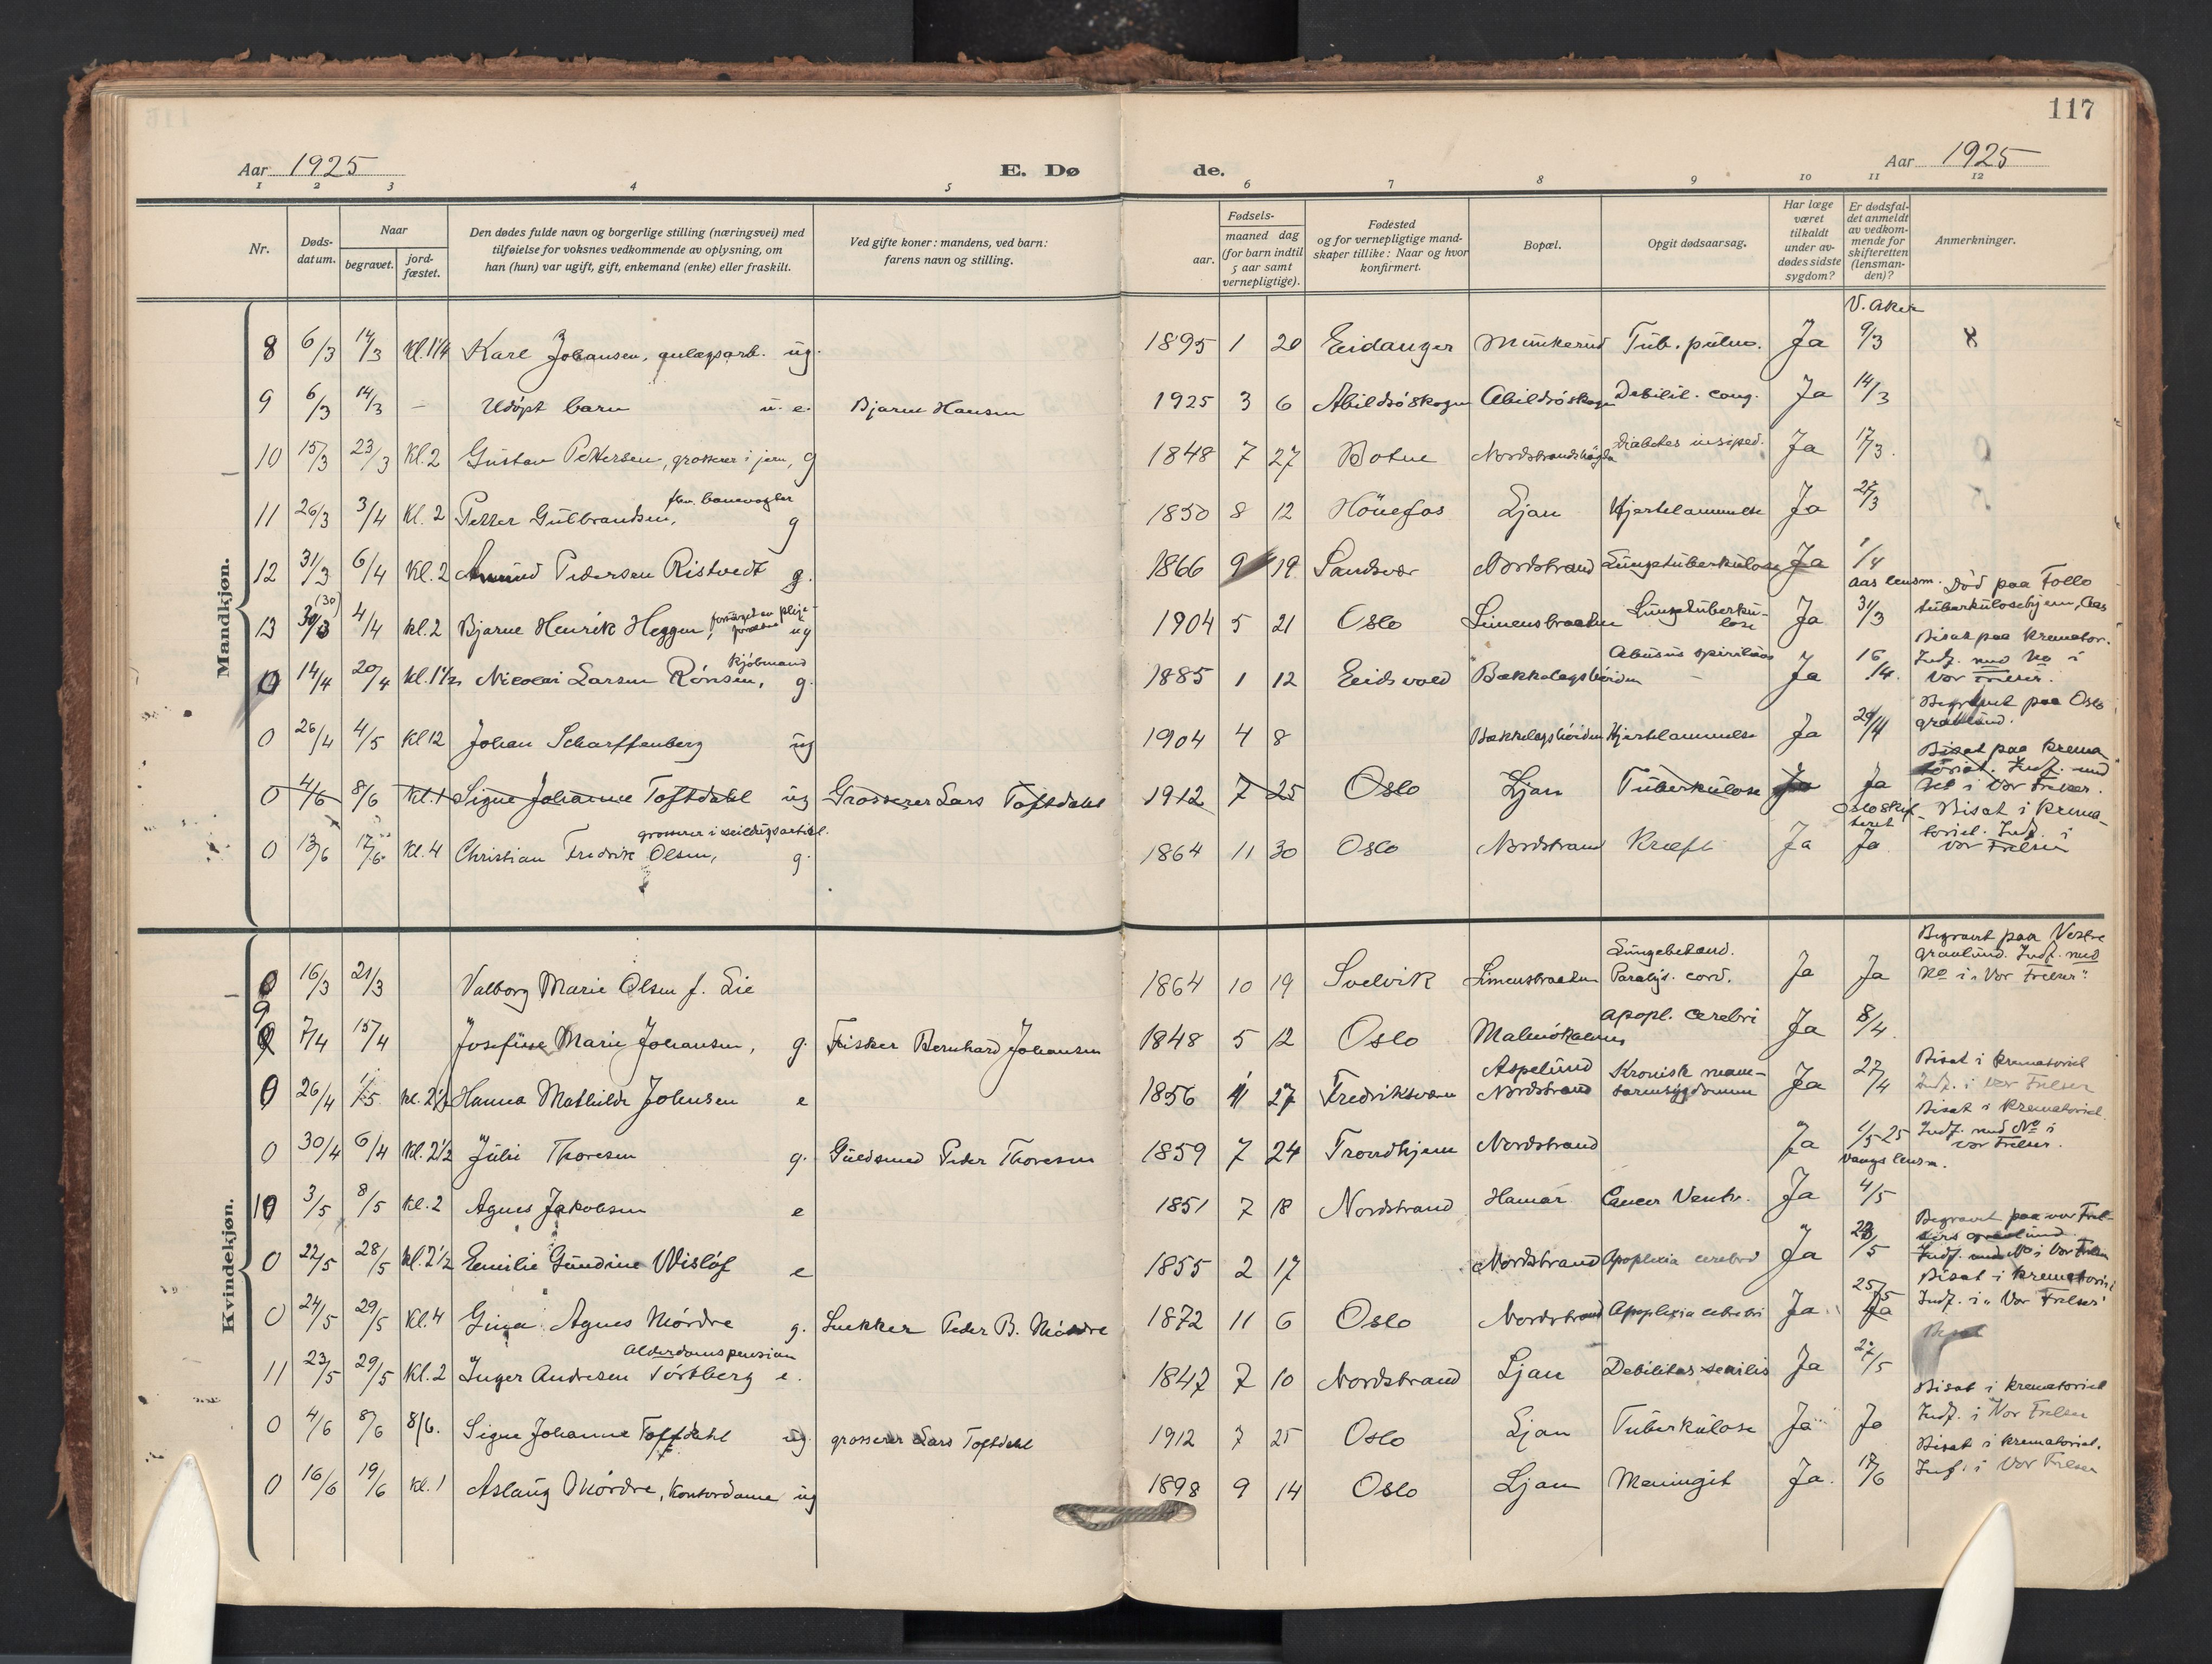 117
Aar 1925 E. Dø de. Aar 1925
1 2 3 4 5 6 7 8 9 10 11 12
Nr.
Døds-
datum.
Naar
begravet.
jord-
fæstet.
Den dødes fulde navn og borgerlige stilling (næringsvei) med
tilføielse for voksnes vedkommende av oplysning, om
han (hun) var ugift, gift, enkemand (enke) eller fraskilt.
Ved gifte koner: mandens, ved barn:
farens navn og stilling.
Fødsels-
aar.
maaned dag
(for barn indtil
5 aar samt
vernepligtige).
Fødested
og for vernepligtige mand-
skaper tillike: Naar og hvor
konfirmert.
Bopæl.
Opgit dødsaarsag.
Har læge
været
tilkaldt
under av-
dødes sidste
sygdom?
Er dødsfal-
det anmeldt
av vedkom-
mende for
skifteretten
(lensman-
den)?
Anmerkninger.
Mandkjøn.
V. Aker
8 6/3 14/3 Kl. 1 1/4 Karl Johansen, anlægsarb. ug. 1895 1 20 Eidanger Munkerud Tub. pulm. Ja 9/3
9 6/3 14/3 — Udøpt barn u. e. Bjarne Hansen 1925 3 6 Abildsöskogen Abildsöskogen Debilit. cong. Ja 14/3
10 15/3 23/3 Kl. 2 Gustav Pettersen, grosserer i jern, g 1848 7 27 Botne Nordstrandshøgda Diabetes insiped. Ja 17/3.
fhv. banevogter
11 26/3 3/4 Kl. 2 Petter Gulbrandsen, g 1850 8 12 Hönefos Ljan Hjertelammelse Ja 27/3
12 31/3 6/4 Kl. 2 Amund Pedersen Ristvedt g. 1866 9 19 Sandsvær Nordstrand Lungetuberkulose Ja 1/4
Aas lensm. Död paa Follo
13 30/3 (30) 4/4 Kl. 2 Bjarne Henrik Heggen, forsörget av pleie-
forældre ug 1904 5 21 Oslo Simensbraaten Lungetuberku-
lose Ja 31/3 tuberkulosehjem, Aas
kjöbmand Bisat paa Kremator.
0 14/4 20/4 Kl. 1 1/2 Nicolai Larsen Rönsen, g. 1885 1 12 Eidsvold Bækkelagshöiden Abusus spirituos Ja 16/4. Indf. med No i
Vor Frelser.
0 26/4 4/5 Kl 12 Johan Scharffenberg ug 1904 4 8 Bækkelagshöiden Hjertelammelse Ja 29/4 Begravet paa Oslo
gravlund.
0 4/6 8/6 Kl. 1 Signe Johanne Toftdahl ug Grosserer Lars Toftdahl 1912 7 25 Oslo Ljan Tuberkulose Ja Ja Bisat paa krema-
toriet. Indf. med
No i Vor Frelser.
grosserer i seildugsartikl. Oslo skif-
teret
0 13/6 17/6 Kl. 4 Christian Fredrik Olsen, g. 1864 11 30 Oslo Nordstrand Kræft Ja Ja Bisat i krema-
toriet. Indf. i
Vor Frelser
Kvindekjøn.
0 16/3 21/3 Valborg Marie Olsen f. Lie 1864 10 19 Svelvik Simensbraaten Lungebetænd.
Paralys. cord. Ja Ja Begravet paa Vestre
gravlund. Indf. med
No i „Vor Frelser"
9 7/4 15/4 Josefine Marie Johansen, g. Fisker Bernhard Johansen 1848 5 12 Oslo Malmökalven Apopl. cerebri Ja 8/4.
0 26/4 1/5 Kl. 2 1/2 Hanna Mathilde Johnsen e 1856 11 27 Fredriksværn Aspelund
Nordstrand Kronisk mave-
tarmsygdomme Ja 27/4 Bisat i krematoriet
Indf. i Vor Frelser
0 30/4 6/4 Kl. 2 1/2 Julie Thoresen g. Guldsmed Peder Thoresen 1859 7 24 Trondhjem Nordstrand Ja 1/5 25 Bisat i Krematoriet
Indf. med No i
Vor Frelser.
Vangs lensm.
10 3/5 8/5 Kl. 2 Agnes Jakobsen e 1851 7 18 Nordstrand Hamar Cancer Ventr. Ja 4/5
0 22/5 28/5 Kl. 2 1/2 Emilie Gundine Wisløf e 1855 2 17 Nordstrand Apoplexia cerebri Ja 23/5 Begravet paa Vor Frel-
sers gravlund.
Indf. med No i Vor Frelser
0 24/5 29/5 Kl. 4 Gina Agnes Mördre g. Snekker Peder B. Mördre 1872 11 6 Oslo Nordstrand Apoplexia cerebri Ja 25/5
Ja Bisat i krematoriet
Indf. i „Vor Frelser"
Alderdomspension
11 23/5 29/5 Kl. 2 Inger Andresen Törtberg e. 1847 7 10 Nordstrand Ljan Debilitas senilis Ja 27/5
0 4/6 8/6 8/6. Signe Johanne Toftdahl ug. grosserer Lars Toftdahl 1912 7 25 Oslo Ljan Tuberkulose Ja Ja Bisat i krematoriet
Indf. i Vor Frelser
0 16/6 19/6 Kl. 1 Aslaug Mördre, kontordame ug 1898 9 14 Oslo Ljan Meningit Ja. 17/6 Bisat i krematoriet.
Inf. i Vor Frelser